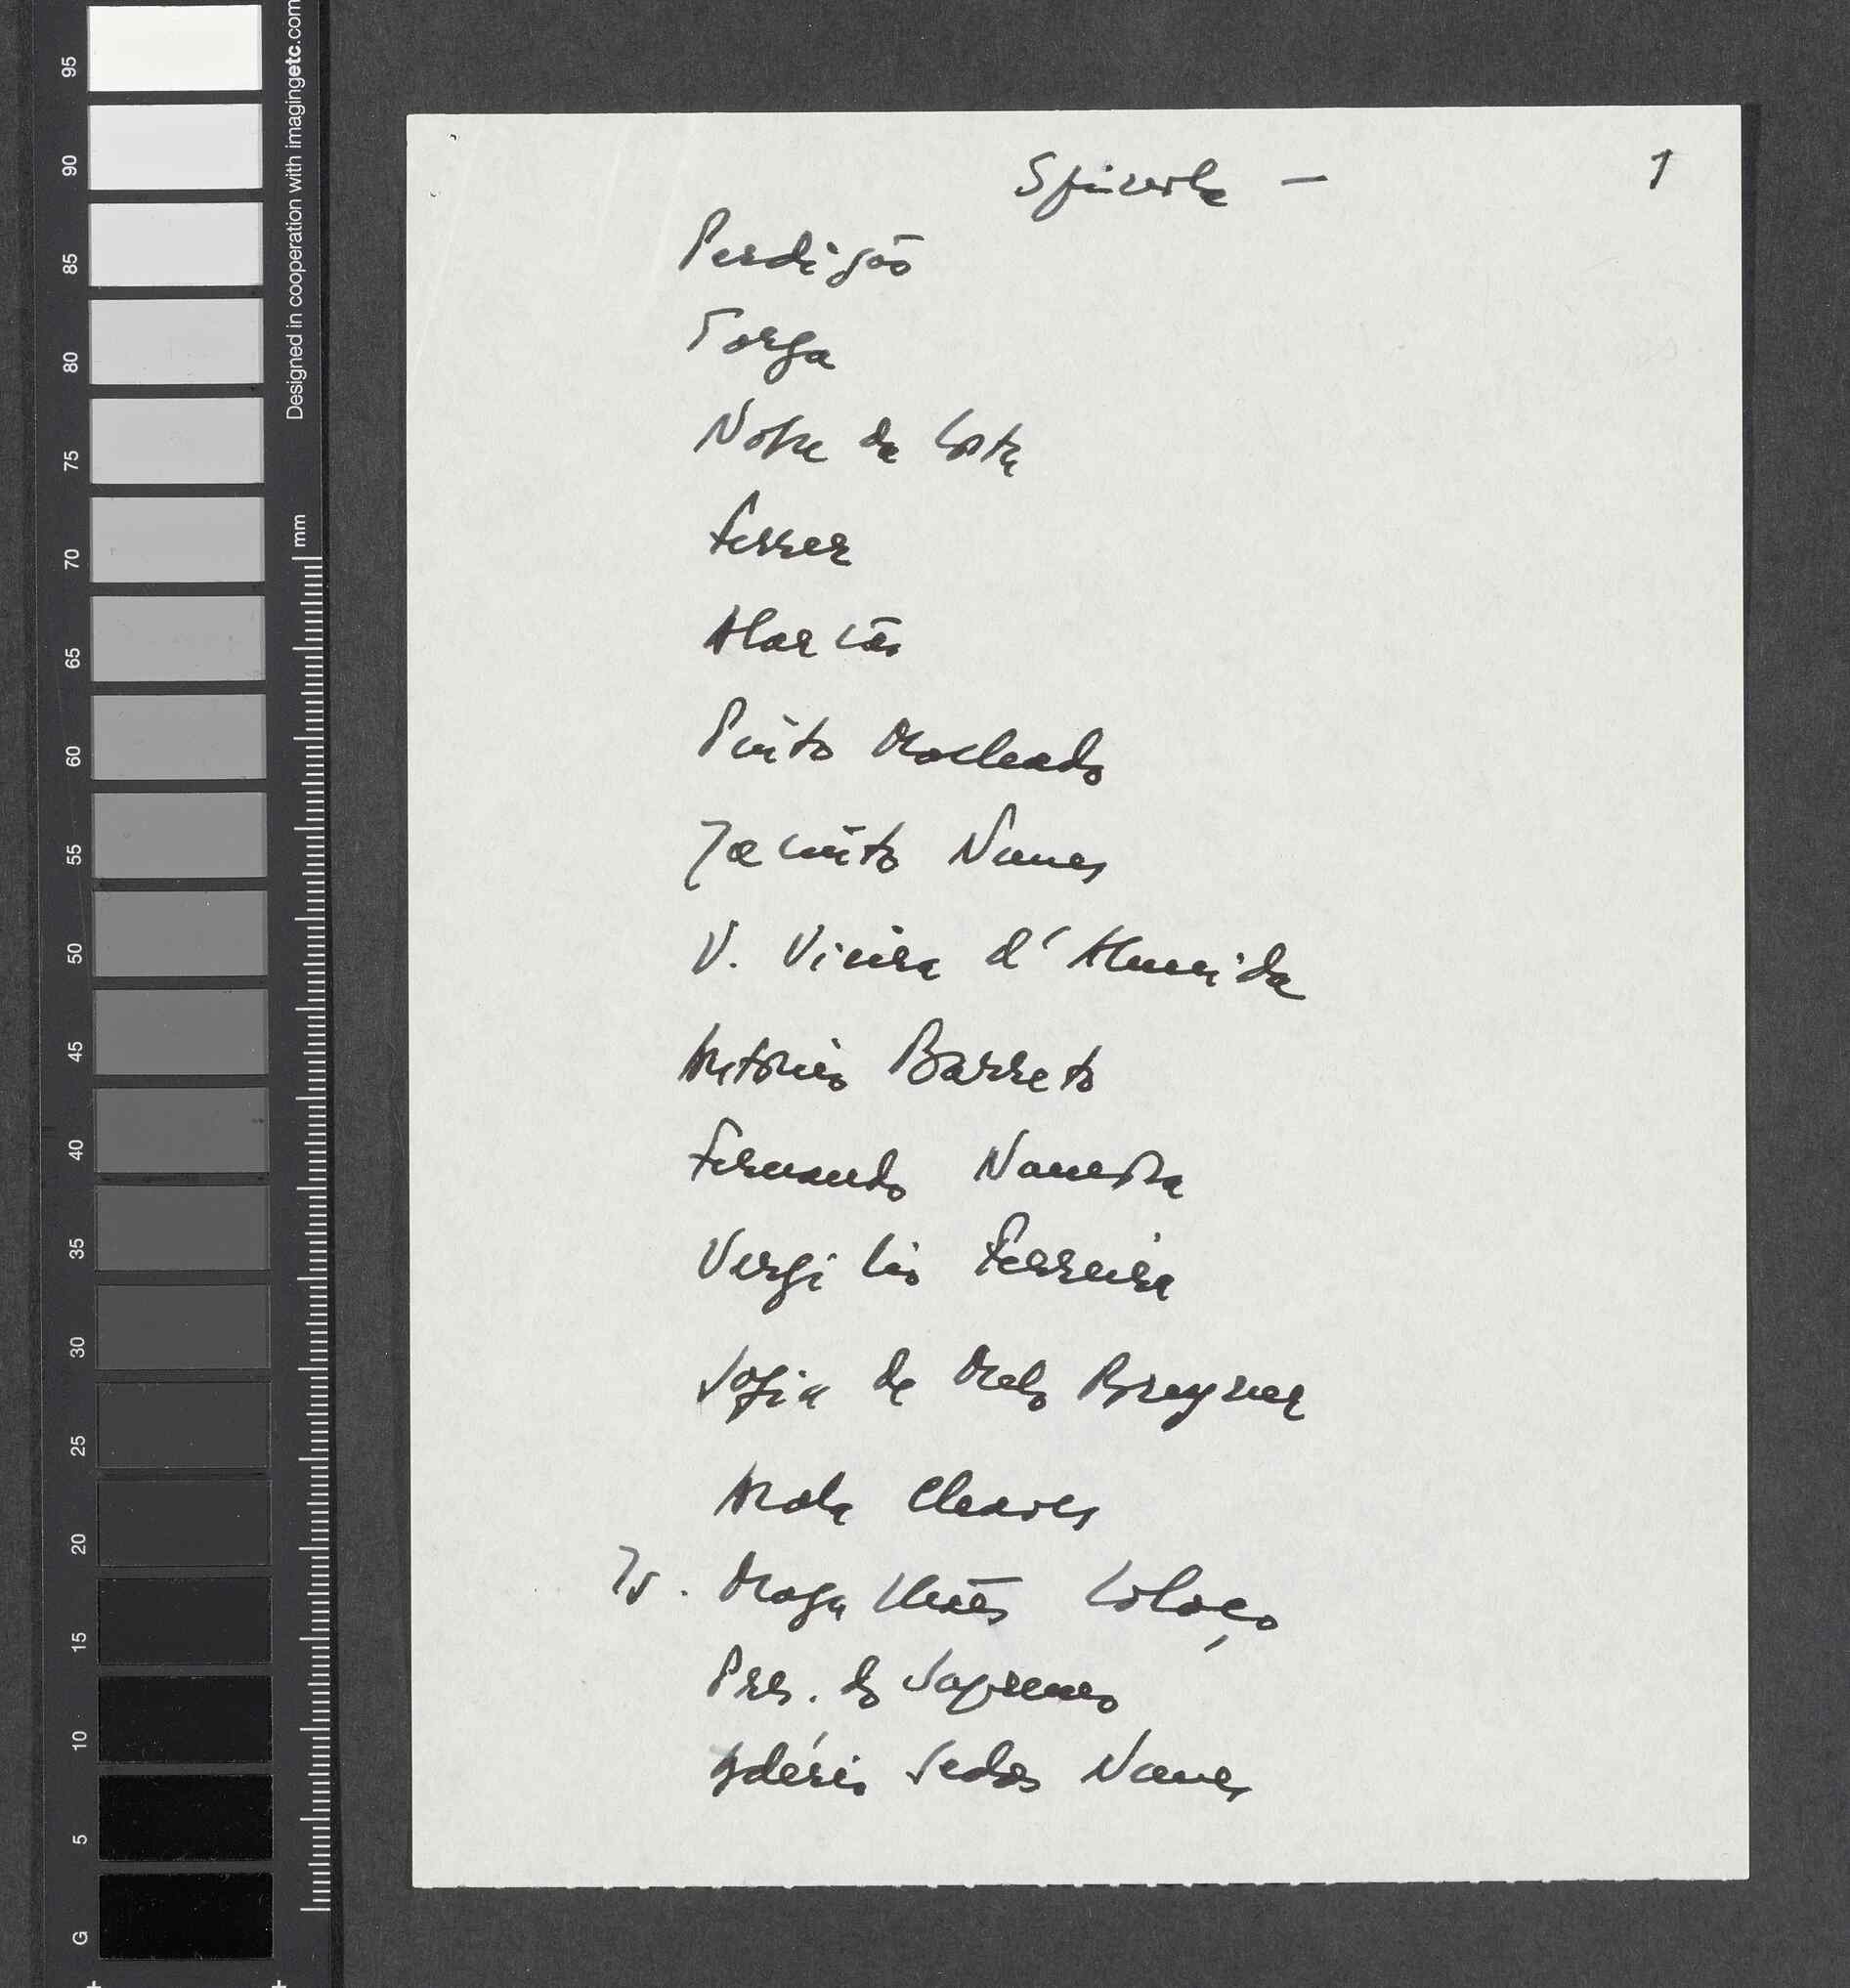 Spínola — 1
Perdigão
Torga
Nobre da Costa
Ferrer
Alarcão
Pinto Machado
Jacinto Nunes
V. Vieira d'Almeida
António Barreto
Fernando Namora
Vergilio Ferreira
Sofia de Melo Breyner
Arala Chaves
Is. Magalhães Colaço
Pres. do Supremo
Adérito Sedas Nunes
95
90
85
80
75
70
65
60
55
50
45
40
35
30
25
20
15
10
5
G
mm
Designed in cooperation with imagingetc.com